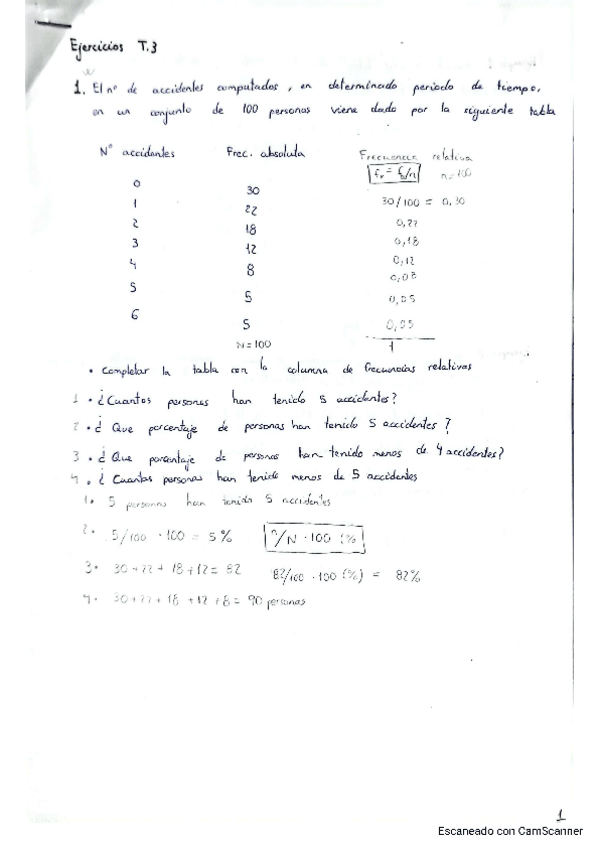 Ejercicios T.3
1. El nº de accidentes computados, en determinado periodo de tiempo,
en un conjunto de 100 personas viene dado por la siguiente tabla
Nº accidentes Frec. absoluta Frecuencia relativa
fr = fa/n n=100
0 30 30/100 = 0,30
1 22 0,22
2 18 0,18
3 12 0,12
4 8 0,08
5 5 0,05
6 5 0,05
N=100 1
• Completar la tabla con la columna de frecuencias relativas
1 • ¿Cuantos personas han tenido 5 accidentes?
2 • ¿ Que porcentaje de personas han tenido 5 accidentes ?
3 • ¿ Que porcentaje de personas han tenido menos de 4 accidentes?
4 • ¿ Cuantas personas han tenido menos de 5 accidentes
1• 5 personas han tenido 5 accidentes
2• 5/100 · 100 = 5% n/N · 100 (%)
3• 30+22+ 18 +12= 82 82/100 · 100 (%) = 82%
4• 30+22+ 18 +12 +8= 90 personas
1
Escaneado con CamScanner